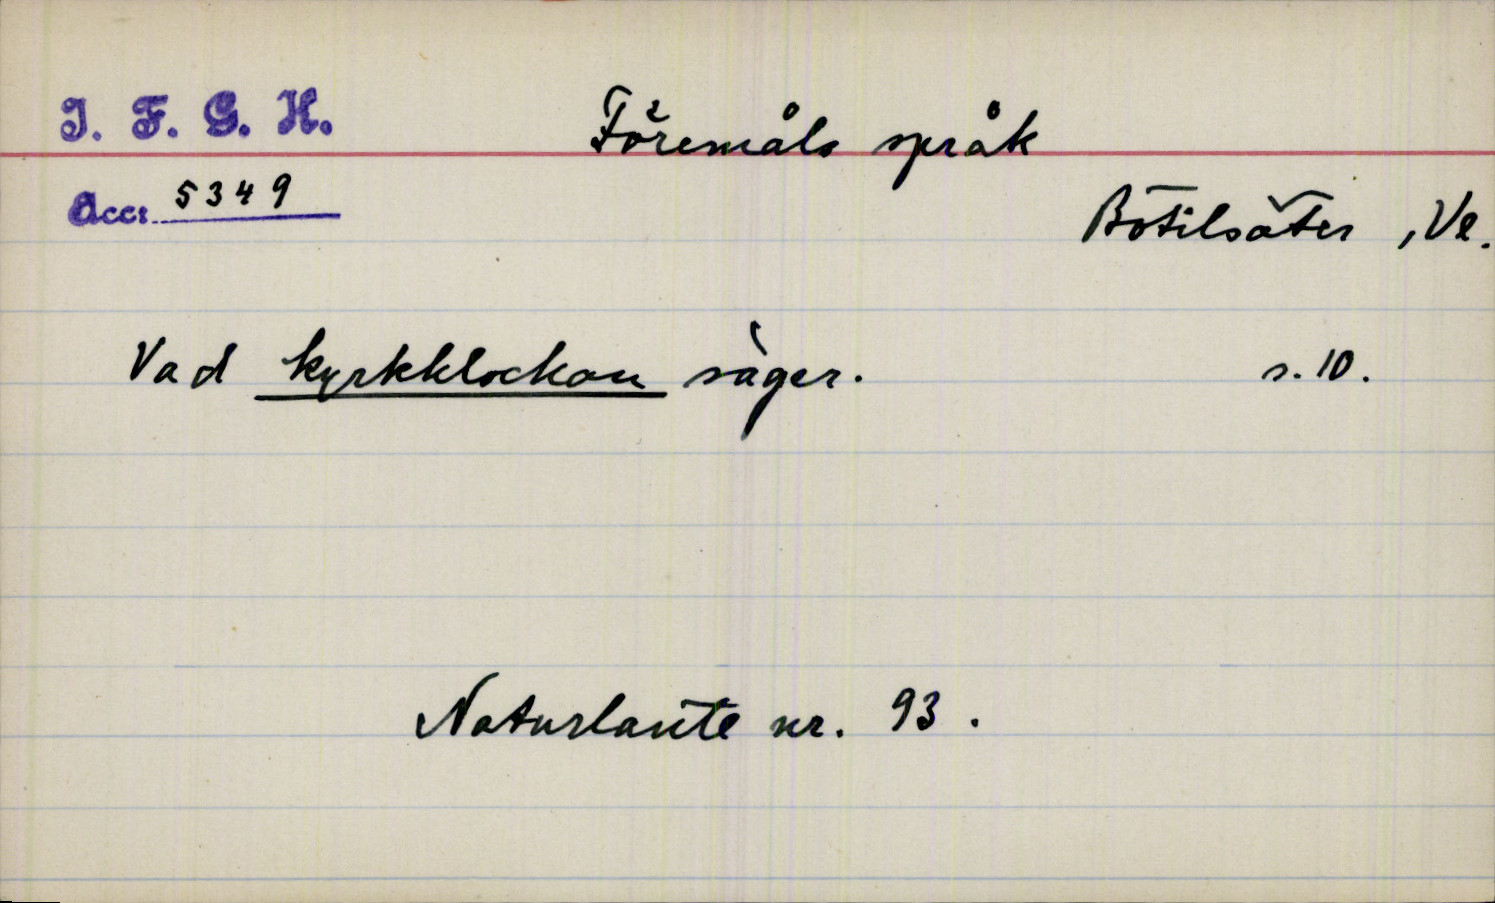 I. F. G. H.
Föremåls språk
Acc: 5349
Botilsäter, Vl.
Vad kyrkklockan säger. s. 10.
Naturlaute nr. 93.